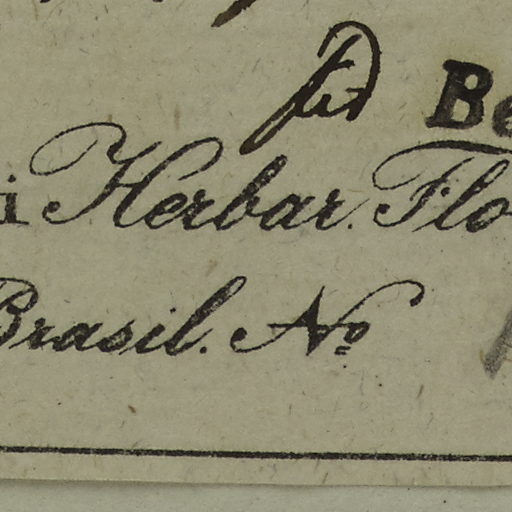 Be
i Herbar. Flo
Brasil. No